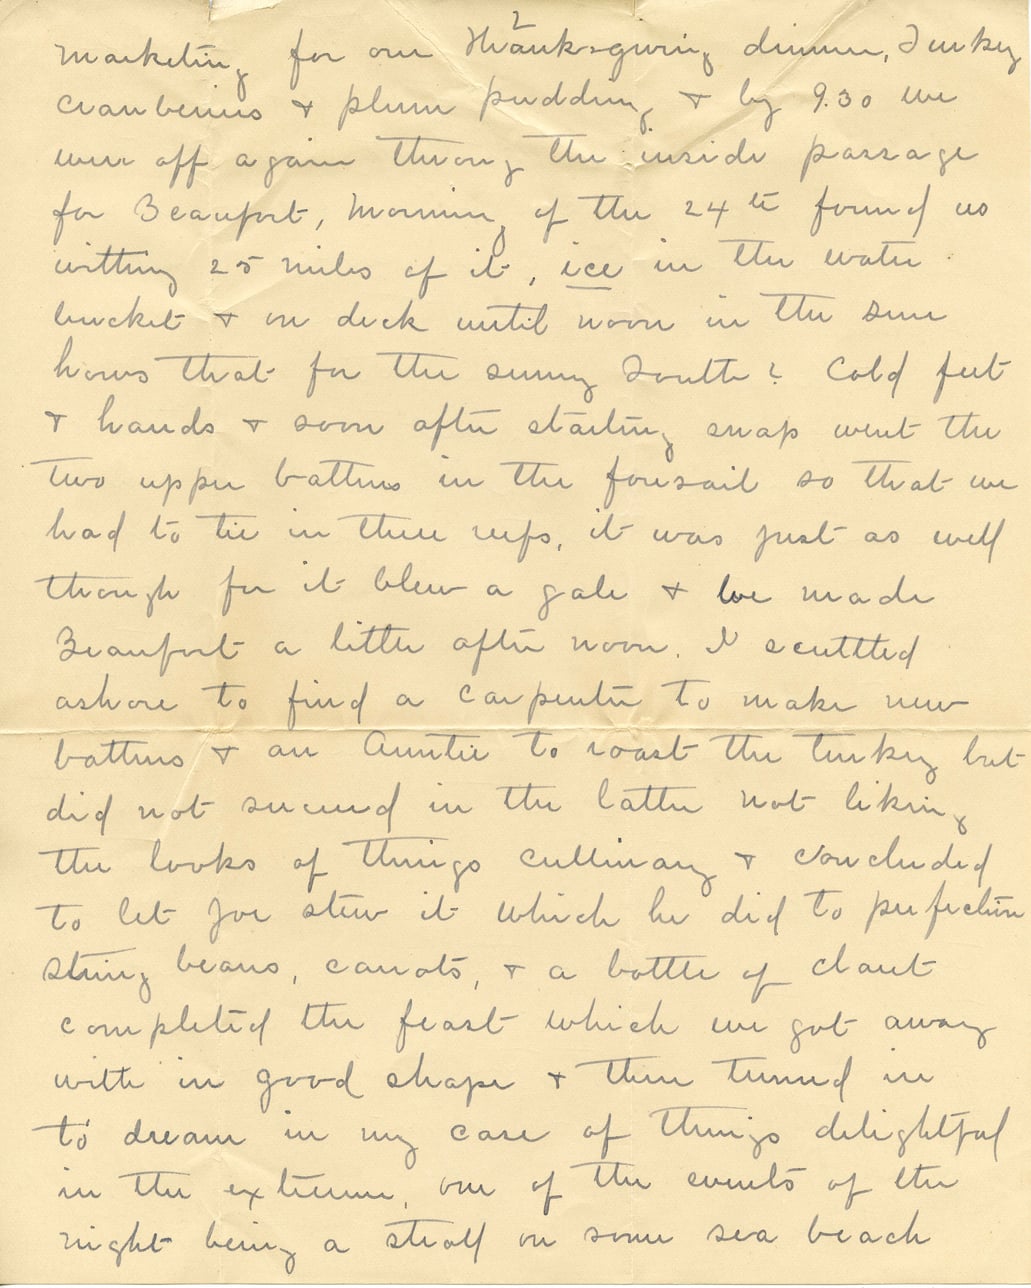 2
Marketing for our Thanksgiving dinner, Turkey
cranberries & plum pudding & by 9.30 we
were off again throug the inside passage
for Beaufort, Morning of the 24th found us
withing 25 miles of it, ice in the water
bucket & on deck until noon in the sun
hows that for the sunny South? Cold feet
& hands & soon after starting snap went the
two upper battens in the foresail so that we
had to tie in three reefs, it was just as well
though for it blew a gale & we made
Beaufort a little after noon. I scuttled
ashore to find a carpenter to make new
battens & an Auntie to roast the turkey but
did not succeed in the latter not liking
the looks of things cullinary & concluded
to let Joe stew it which he did to perfection
string beans, carrots, & a bottle of claret
completed the feast which we got away
with in good shape & then turned in
to dream in my case of things delightful
in the extreme, one of the events of the
night being a stroll on some sea beach